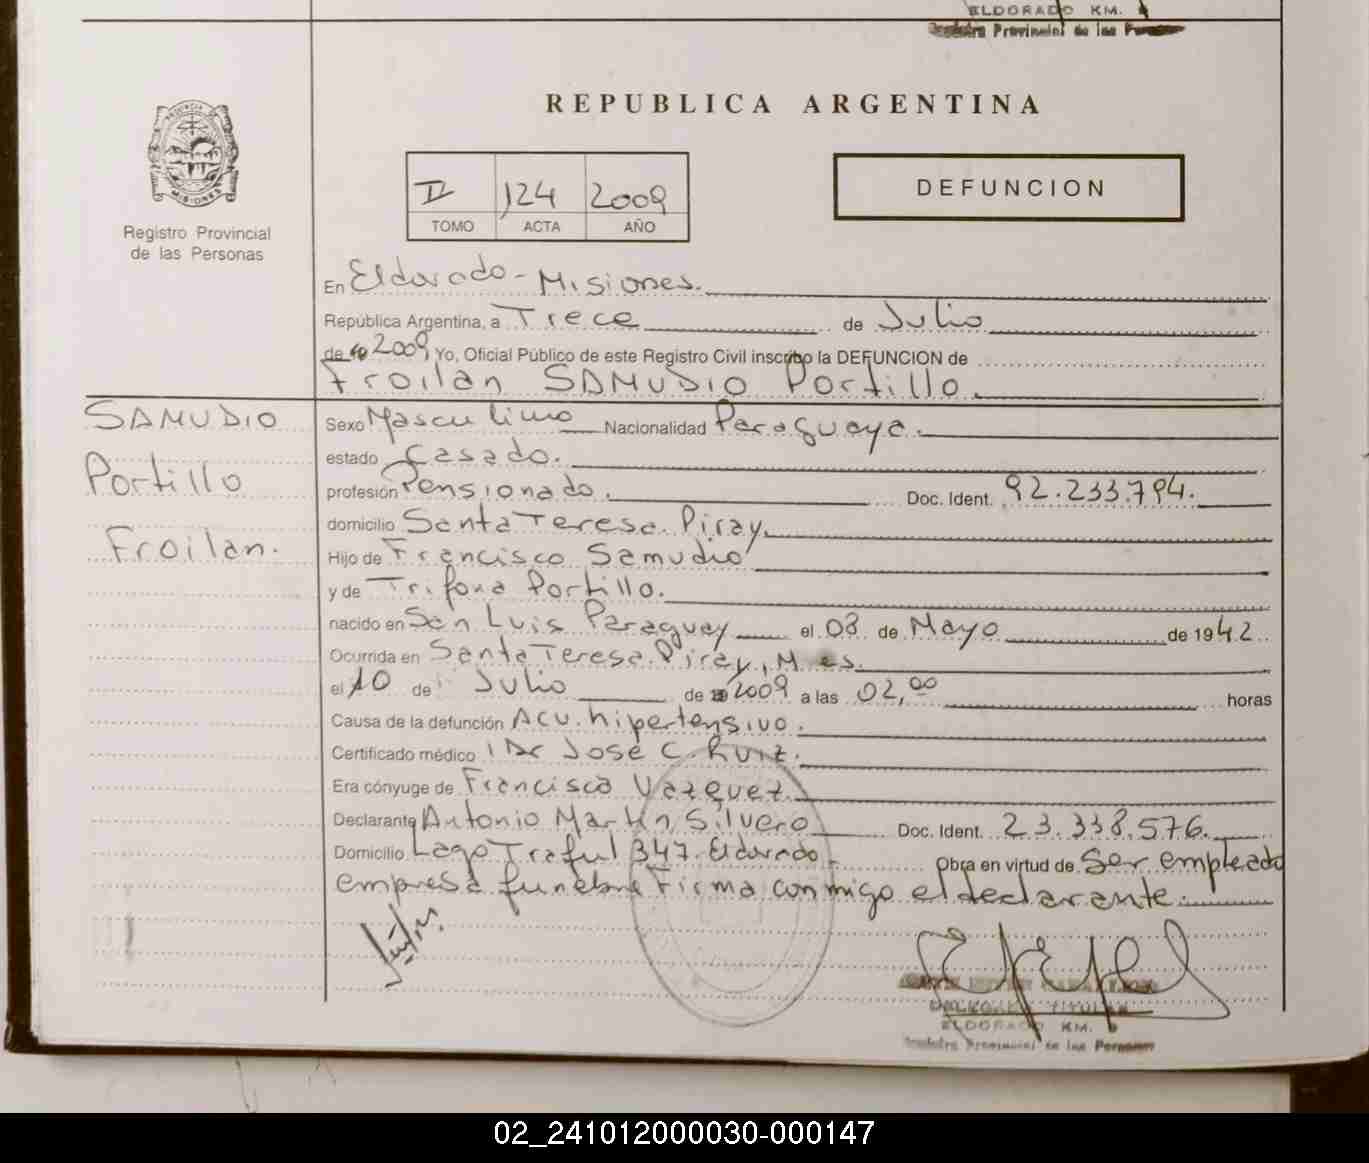 ELDORADO KM.
Registro Provincial de las Personas
REPUBLICA ARGENTINA
PROVINCIA DE
MISIONES
II 124 2009
TOMO ACTA AÑO
DEFUNCION
Registro Provincial
de las Personas
En Eldorado - Misiones.
República Argentina, a Trece de Julio
de 2009 Yo, Oficial Público de este Registro Civil inscribo la DEFUNCION de
Froilan SAMUDIO Portillo.
SAMUDIO
Portillo
Froilan.
Sexo Masculino Nacionalidad Paraguaya.
estado Casado.
profesión Pensionado. Doc. Ident. 92.233.794.
domicilio Santa Teresa. Piray.
Hijo de Francisco Samudio
y de Trifona Portillo.
nacido en San Luis Paraguay el 08 de Mayo de 1942
Ocurrida en Santa Teresa. Piray, M es.
el 10 de Julio de 2009 a las 02,00 horas
Causa de la defunción Acv. hipertensivo.
Certificado médico Dr José C. Ruiz.
Era cónyuge de Francisca Vazquez.
Declarante Antonio Martin Silvero Doc. Ident. 23.338.576.
Domicilio Lago Traful 347. Eldorado. Obra en virtud de Ser empleado
empresa funebre Firma conmigo el declarante.
TITULAR
ELDORADO KM.
Registro Provincial de las Personas
02_241012000030-000147